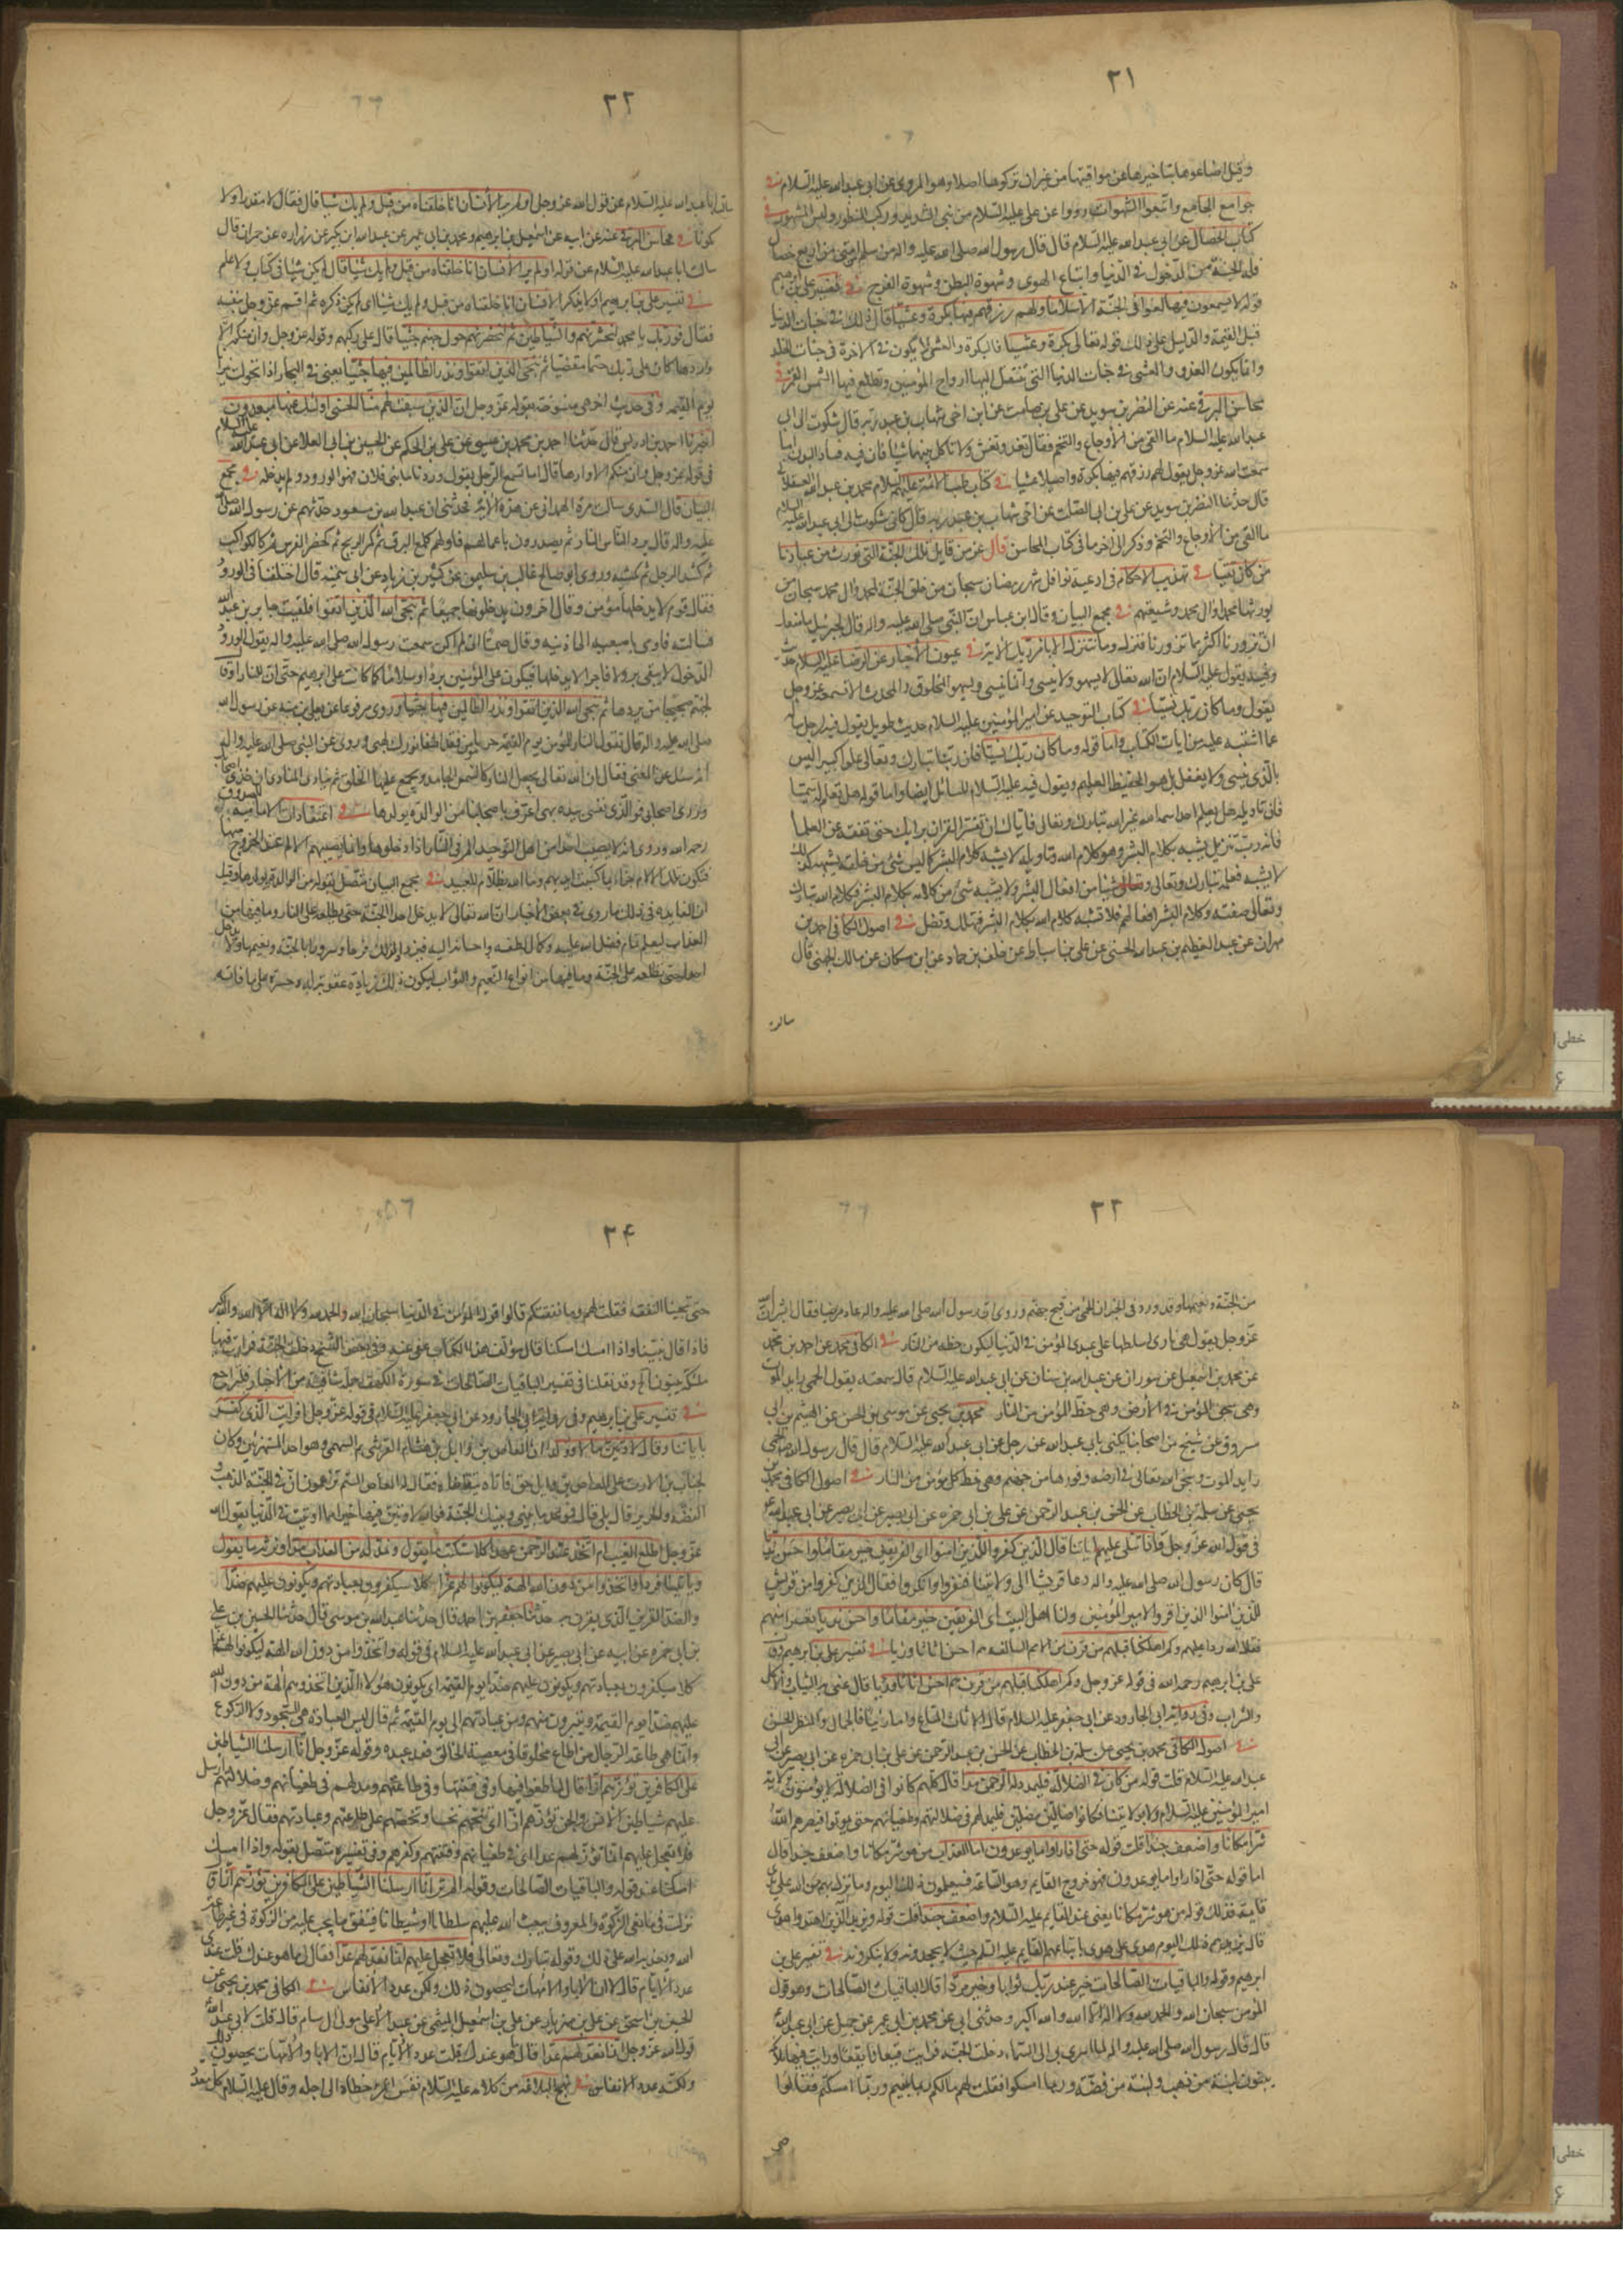 ٣١
وقيل اضاعوها بتاخيرها عن مواقيتها من غير ان تركوها اصلا وهو المروى عن ابى عبدالله عليه السلام فى
جوامع الجامع واتبعوا الشهوات رووا عن على عليه السلام من بنى الشديد وركب المنظور ولبس المشهور فى
كتاب الخصال عن ابى عبدالله عليه السلام قال قال رسول الله صلى الله عليه واله من سلم من امتى من اربع خصال
فله الجنة من الدخول فى الدنيا واتباع الهوى وشهوة البطن وشهوة الفرج فى تفسير على بن ابرهيم
قوله لا يسمعون فيها لغوا فى الجنة الا سلاما ولهم رزقهم فيها بكرة وعشيا قال ذلك فى جنات الدنيا
قبل القيمة والدليل على ذلك قوله تعالى بكرة وعشيا فالبكرة والعشى لا يكون فى الاخرة فى جنات الخلد
وانما يكون الغدو والعشى فى جنات الدنيا التى تنتقل اليها ارواح المؤمنين وتطلع فيها الشمس والقمر فى
محاسن البرقى عنه عن النضر بن سويد عن على بن صامت عن ابن اخى شهاب بن عبد ربه قال شكوت الى ابى
عبدالله عليه السلام ما القى من الاوجاع والتخم فقال تغد وتعش ولا تاكل بينهما شيئا فان فيه فساد البدن اما
سمعت الله عز وجل يقول لهم رزقهم فيها بكرة وعشيا فى كتاب طب الائمة عليهم السلام محمد بن عبدالله العسقلانى
قال حدثنا النضر بن سويد عن على بن ابى الصلت عن اخى شهاب بن عبد ربه قال كانى شكوت الى ابى عبدالله عليه السلام
ما القى من الاوجاع والتخم وذكر الى اخر ما فى كتاب المحاسن قال عز من قايل تلك الجنة التى نورث من عبادنا
من كان تقيا فى تهذيب الاحكام فى ادعية نوافل شهر رمضان سبحان من خلق الجنة لمحمد وال محمد سبحان من
يورثها محمدا وال محمد وشيعتهم فى مجمع البيان وقال ابن عباس ان النبى صلى الله عليه واله قال لجبرئيل ما منعك
ان تزورنا اكثر مما تزورنا فنزله وما نتنزل الا بامر ربك الاية فى عيون الاخبار عن الرضا عليه السلام حديث
وفيه يقول عليه السلام ان الله تعالى لا يسهو ولا ينسى وانما ينسى ويسهو المخلوق والمحدث الا تسمعه عز وجل
يقول وما كان ربك نسيا فى كتاب التوحيد عن امير المؤمنين عليه السلام حديث طويل يقول فيه لرجل ساله
عما اشتبه عليه من ايات الكتاب واما قوله وما كان ربك نسيا فان ربنا تبارك وتعالى علوا كبيرا ليس
بالذى ينسى ولا يغفل بل هو الحفيظ العليم ويقول فيه عليه السلام للسائل ايضا واما قوله هل تعلم له سميا
فان تاويله هل يعلم احدا اسمه الله غير الله تبارك وتعالى فاياك ان تفسر القران برايك حتى تفقه عن العلما
فانه رب تنزيل يشبه بكلام البشر وهو كلام الله وتاويله لا يشبه كلام البشر كما ليس شئ من خلقه يشبهه كذلك
لا يشبه فعله تبارك وتعالى شيئا من افعال البشر ولا يشبه شئ من كلامه بكلام البشر فكلام الله تبارك
وتعالى صفته وكلام البشر افعالهم فلا تشبه كلام الله بكلام البشر فتهلك وتضل فى اصول الكافى احمد بن
مهران عن عبد العظيم بن عبدالله الحسنى عن على بن اسباط عن خلف بن حماد عن ابن مسكان عن مالك الجهنى قال
سالت
٣٢
سالت ابا عبدالله عليه السلام عن قول الله عز وجل اولم ير الانسان انا خلقناه من قبل ولم يك شيئا قال فقال لا مقدرا ولا
مكونا فى محاسن البرقى عنه عن ابيه عن اسمعيل بن ابرهيم ومحمد بن ابى عمير عن عبدالله ابن بكير عن زراره عن حمران قال
سالت ابا عبدالله عليه السلام عن قوله اولم ير الانسان انا خلقناه من قبل ولم يك شيئا قال لم يكن شيئا فى كتاب ولا علم
فى تفسير على بن ابرهيم اولا يذكر الانسان انا خلقناه من قبل ولم يك شيئا اى لم يكن ذكره ثم اقسم عز وجل بنفسه
فقال فو ربك يا محمد لنحشرنهم والشياطين ثم لنحضرنهم حول جهنم جثيا قال على ركبهم وقوله عز وجل وان منكم الا
واردها كان على ربك حتما مقضيا ثم ننجى الذين اتقوا ونذر الظالمين فيها جثيا يعنى فى البحار اذا تحولت نيرانا
يوم القيمة وفى حديث اخر هى منسوخة بقوله عز وجل ان الذين سبقت لهم منا الحسنى اولئك عنها مبعدون
اخبرنا احمد بن ادريس قال حدثنا احمد بن محمد بن عيسى عن على بن الحكم عن الحسين بن ابى العلا عن ابى عبدالله عليه السلام
فى قوله عز وجل وان منكم الا واردها قال اما تسمع الرجل يقول وردنا ماء بنى فلان فهو الورود ولم يدخله فى مجمع
البيان قال السدى سالت مرة الهمدانى عن هذه الاية فحدثنى ان عبدالله بن مسعود حدثهم عن رسول الله صلى الله
عليه واله قال يرد الناس النار ثم يصدرون باعمالهم فاولهم كلمع البرق ثم كمر الريح ثم كحضر الفرس ثم كالراكب
ثم كشد الرجل ثم كمشيه وروى ابو صالح غالب بن سليمن عن كثير بن زياد عن ابى سمية قال اختلفنا فى الورود
فقال قوم لا يدخلها مؤمن وقال اخرون يدخلونها جميعا ثم ننجى الله الذين اتقوا فلقيت جابر بن عبدالله
فسالته فاومى باصبعيه الى اذنيه وقال صمتا ان لم اكن سمعت رسول الله صلى الله عليه واله يقول الورود
الدخول لا يبقى بر ولا فاجر الا يدخلها فيكون على المؤمنين بردا وسلاما كما كانت على ابرهيم حتى ان للنار او قال
لجهنم ضجيجا من بردها ثم ننجى الله الذين اتقوا ونذر الظالمين فيها جثيا وروى مرفوعا عن يعلى بن منبه عن رسول الله
صلى الله عليه واله قال تقول النار للمؤمن يوم القيمة جز يا مؤمن فقد اطفا نورك لهبى وروى عن النبى صلى الله عليه واله
انه سئل عن المعنى فقال ان الله تعالى يجعل النار كالسمن الجامد ويجمع عليها الخلق ثم ينادى المنادى ان خذى اصحابك
وذرى اصحابى فوالذى نفسى بيده لهى اعرف باصحابها من الوالدة بولدها فى اعتقادات الامامية للصدوق
رحمه الله وروى انه لا يصيب احدا من اهل التوحيد الم فى النار اذا دخلوها وانما يصيبهم الالم عند الخروج منها
فتكون تلك الالام جزاء بما كسبت ايديهم وما الله بظلام للعبيد فى مجمع البيان متصل بقوله من الوالدة بولدها وقيل
ان الفايدة فى ذلك ما روى فى بعض الاخبار ان الله تعالى لا يدخل احدا الجنة حتى يطلعه على النار وما فيها من
العذاب ليعلم تمام فضل الله عليه وكمال لطفه واحسانه اليه فيزداد لذلك فرحا وسرورا بالجنة ونعيمها ولا يدخل
احدا حتى يطلعه على الجنة وما فيها من انواع النعيم والثواب ليكون ذلك زيادة عقوبة له وحسرة على ما فاته
٣٣
من الجنة ونعيمها وقد ورد فى الخبر ان الحمى من فيح جهنم وروى ان رسول الله صلى الله عليه واله عاد مريضا فقال ابشر ان الله
عز وجل يقول هى نارى اسلطها على عبدى المؤمن فى الدنيا ليكون حظه من النار فى الكافى محمد عن احمد بن محمد
عن محمد بن اسمعيل عن سعدان عن عبدالله بن سنان عن ابى عبدالله عليه السلام قال سمعته يقول الحمى رايد الموت
وهى سجن المؤمن فى الارض وهى حظ المؤمن من النار محمد بن يحيى عن موسى بن الحسن عن الهيثم بن ابى
مسروق عن شيخ من اصحابنا يكنى بابى عبدالله عن رجل عن ابى عبدالله عليه السلام قال قال رسول الله الحمى
رايد الموت وسجن الله تعالى فى ارضه وفورها من جهنم وهى حظ كل مؤمن من النار فى اصول الكافى محمد بن
يحيى عن سلمة بن الخطاب عن الحسن بن عبد الرحمن عن على بن ابى حمزه عن ابى بصير عن ابى عبدالله
فى قول الله عز وجل واذا تتلى عليهم اياتنا قال الذين كفروا للذين امنوا اى الفريقين خير مقاما واحسن نديا
قال كان رسول الله صلى الله عليه واله دعا قريشا الى ولايتنا فنفروا وانكروا فقال الذين كفروا من قريش
للذين امنوا الذين اقروا لامير المؤمنين ولنا اهل البيت اى الفريقين خير مقاما واحسن نديا تعييرا منهم
فقال الله ردا عليهم وكم اهلكنا قبلهم من قرن من الامم السالفة هم احسن اثاثا ورئيا فى تفسير على بن ابرهيم وقال
على بن ابرهيم رحمه الله فى قوله عز وجل وكم اهلكنا قبلهم من قرن هم احسن اثاثا ورئيا قال عنى به الثياب والاكل
والشراب وفى رواية ابى الجارود عن ابى جعفر عليه السلام قال الاثاث المتاع واما رئيا فالجمال والمنظر الحسن
فى اصول الكافى محمد بن يحيى عن سلمة بن الخطاب عن الحسن بن عبد الرحمن عن على بن ابى حمزه عن ابى بصير عن ابى
عبدالله عليه السلام قلت قوله من كان فى الضلالة فليمدد له الرحمن مدا قال كلهم كانوا فى الضلالة لا يؤمنون بولاية
امير المؤمنين عليه السلام ولا بولايتنا فكانوا ضالين مضلين فليمد لهم فى ضلالتهم وطغيانهم حتى يموتوا فيصيرهم الله
شرا مكانا واضعف جندا قلت قوله حتى اذا راوا ما يوعدون اما العذاب من هو شر مكانا واضعف جندا قال
اما قوله حتى اذا راوا ما يوعدون فهو خروج القايم وهو الساعة فسيعلمون ذلك اليوم وما نزل بهم من الله على يدى
قايمه فذلك قوله من هو شر مكانا يعنى عند القايم عليه السلام واضعف جندا قلت قوله ويزيد الله الذين اهتدوا هدى
قال يزيدهم ذلك اليوم هدى على هدى باتباعهم القايم عليه السلم حيث لا يجحدونه ولا ينكرونه فى تفسير على بن
ابرهيم وقوله والباقيات الصالحات خير عند ربك ثوابا وخير مردا قال الباقيات الصالحات وهو قول
المؤمن سبحان الله والحمد لله ولا اله الا الله والله اكبر وحدثنى ابى عن محمد بن ابى عمير عن جميل عن ابى عبدالله
قال قال رسول الله صلى الله عليه واله لما اسرى بى الى السماء دخلت الجنة فرايت قيعانا يققا ورايت فيها ملائكة
يبنون لبنة من ذهب ولبنة من فضة وربما امسكوا فقلت لهم مالكم ربما بنيتم وربما امسكتم فقالوا
حتى
٣٤
حتى تجيئنا النفقة فقلت لهم وما نفقتكم قالوا قول المؤمن فى الدنيا سبحان الله والحمد لله ولا اله الا الله والله اكبر
فاذا قال بنينا واذا امسك امسكنا قال مؤلف هذا الكتاب عفى عنه وفى بعض النسخ دخلت الجنة فرايت فيها
ملائكة يبنون الخ وقد نقلنا فى تفسير الباقيات الصالحات فى سورة الكهف جملة شافية من الاخبار فليراجع
فى تفسير على بن ابرهيم وفى رواية ابى الجارود عن ابى جعفر عليه السلام فى قوله عز وجل افرايت الذى كفر
باياتنا وقال لاوتين مالا وولدا ان العاص بن وايل بن هشام القرشى ثم السهمى وهو احد المستهزئين وكان
لخباب بن الارت على العاص بن وايل حق فاتاه يتقاضاه فقال له العاص الستم تزعمون ان فى الجنة الذهب و
الفضة والحرير قال بلى قال فموعد ما بينى وبينك الجنة فوالله لاوتين فيها خيرا مما اوتيت فى الدنيا يقول الله
عز وجل اطلع الغيب ام اتخذ عند الرحمن عهدا كلا سنكتب ما يقول ونمد له من العذاب مدا ونرثه ما يقول
وياتينا فردا واتخذوا من دون الله الهة ليكونوا لهم عزا كلا سيكفرون بعبادتهم ويكونون عليهم ضدا
والضد القرين الذى يقرن به حدثنا جعفر بن احمد قال حدثنا عبدالله بن موسى قال حدثنا الحسن بن على
بن ابى حمزه عن ابيه عن ابى بصير عن ابى عبدالله عليه السلام فى قوله واتخذوا من دون الله الهة ليكونوا لهم عزا
كلا سيكفرون بعبادتهم ويكونون عليهم ضدا يوم القيمة اى يكونون هؤلاء الذين اتخذوهم الهة من دون الله
عليهم ضدا يوم القيمة ويتبرؤن منهم ومن عبادتهم الى يوم القيمة ثم قال ليس العبادة هى السجود ولا الركوع
وانما هى طاعة الرجال من اطاع مخلوقا فى معصية الخالق فقد عبده وقوله عز وجل انا ارسلنا الشياطين
على الكافرين تؤزهم ازا قال لما طغوا فيها وفى فتنتها وفى طاعتهم ومد لهم فى طغيانهم وضلالتهم ارسل
عليهم شياطين الانس والجن تؤزهم ازا اى تنخسهم نخسا وتحضهم على طاعتهم وعبادتهم فقال عز وجل
فلا تعجل عليهم انما نعد لهم عدا اى فى طغيانهم وفتنتهم وكفرهم وفى تفسيره متصل بقوله واذا امسك
امسكنا عند قوله والباقيات الصالحات وقوله الم تر انا ارسلنا الشياطين على الكافرين تؤزهم ازا قال
نزلت فى مانعى الزكوة والمعروف يبعث الله عليهم سلطانا او شيطانا فينفق ما يجب عليه من الزكوة فى غير طاعة
الله ويعذبه الله على ذلك وقوله تبارك وتعالى فلا تعجل عليهم انما نعد لهم عدا فقال لى ما هو عندك قلت عندى
عدد الايام قال لا ان الاباء والامهات ليحصون ذلك ولكن عدد الانفاس فى الكافى محمد بن يحيى عن
الحسين بن اسحق عن على بن مهزيار عن على بن اسمعيل الميثمى عن عبد الاعلى مولى ال سام قال قلت لابى عبدالله
قول الله عز وجل انما نعد لهم عدا قال ما هو عندك قلت عدد الايام قال ان الابا والامهات يحصون ذلك
ولكنه عدد الانفاس فى نهج البلاغة من كلامه عليه السلام نفس المرء خطاه الى اجله وقال عليه السلام كل معدود
خطى
۶
خطى
۶